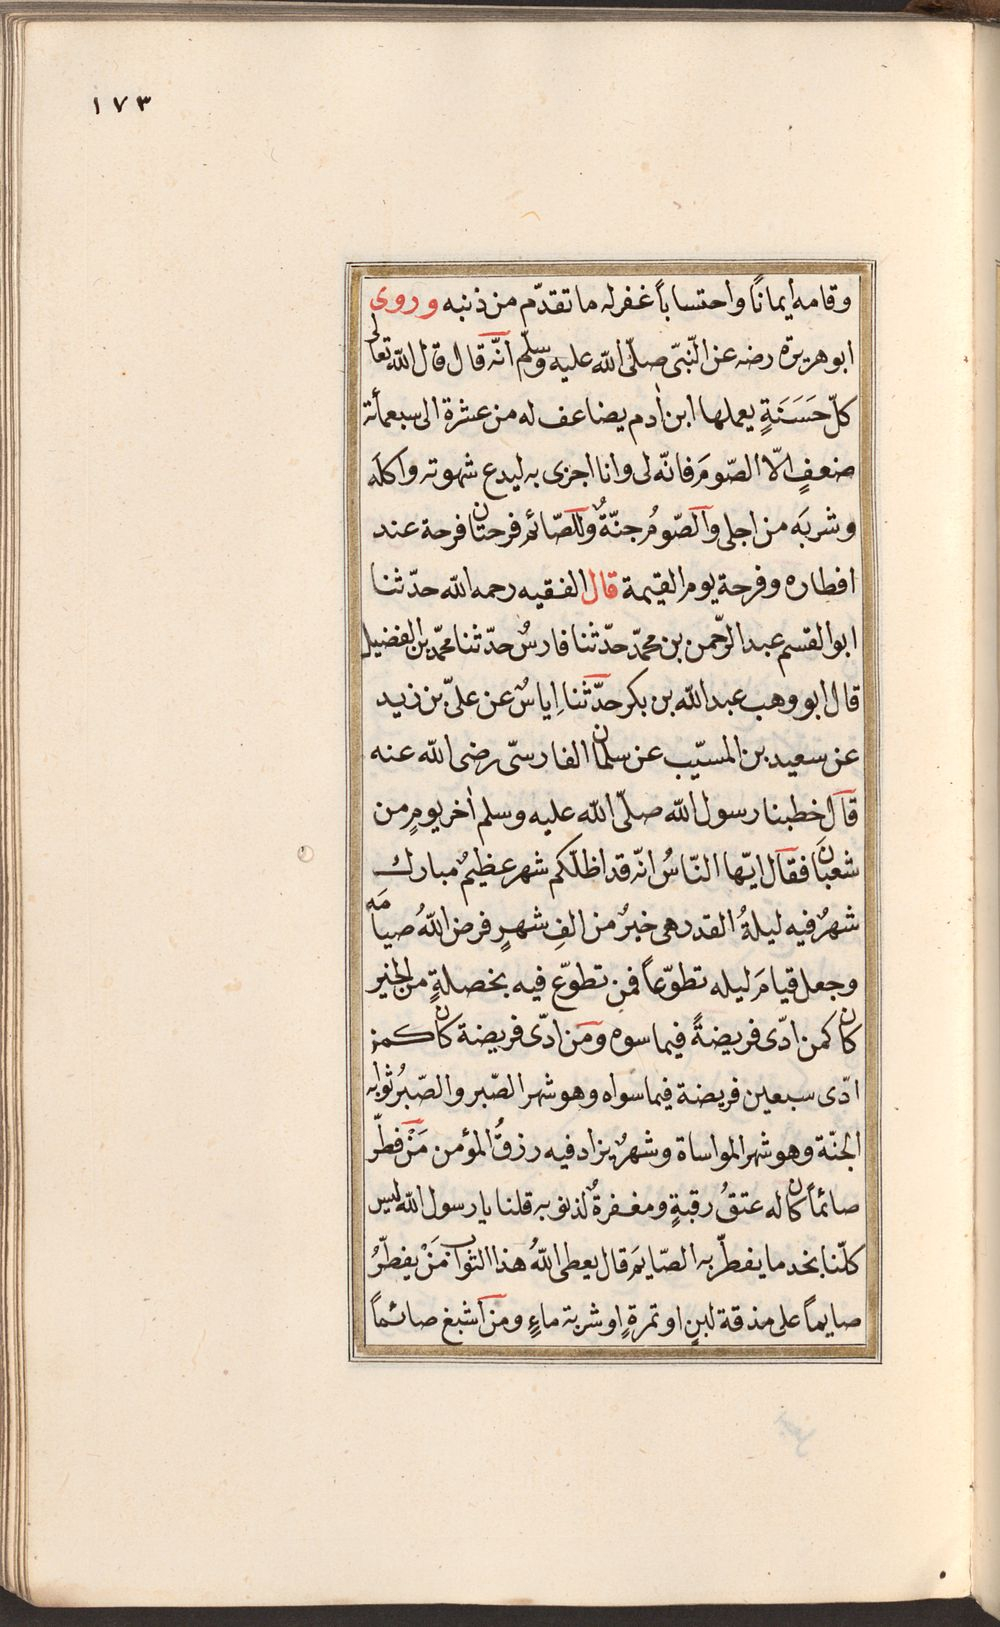 ١٧٣
وقامه ايمانًا واحتسابًا غفر له ما تقدّم من ذنبه وروى
ابو هريرة رضه عن النّبىّ صلّى الله عليه وسلّم انّه قال قال الله تعالى
كلّ حَسَنَةٍ يعملها ابن اٰدم يضاعف له من عشرة الى سبعمأئة
ضعفٍ الّا الصّومَ فانّه لى وانا اجزى به ليدع شهوته واكلَه
وشربَه من اجلى والصّومُ جنّةٌ وللصّائم فرحتان فرحة عند
افطاره وفرحة يوم القيمة قال الفقيه رحمه الله حدّثنا
ابو القسم عبد الرّحمن بن محمّد حدّثنا فارسٌ حدّثنا محمّد بن الفضيل
قال ابو وهب عبد الله بن بكر حدّثنا اِياسٌ عن علىّ بن زيد
عن سعيد بن المسيّب عن سلمان الفارسّى رضى الله عنه
قال خطبنا رسول الله صلّى الله عليه وسلم اٰخر يومٍ من
شعبان فقال ايّها النّاسُ انّه قد اظلّكم شهر عظيمٌ مبارك
شهرٌ فيه ليلةُ القدر هى خيرٌ من الفِ شهرٍ فرض اللهُ صيامَه
وجعل قيامَ ليله تطوّعاً فمن تطوّع فيه بخصلةٍ من الخير
كان كمن ادّى فريضةً فيما سوه ومَن ادّى فريضة كان كمن
ادّى سبعين فريضة فيما سواه وهو شهر الصّبر والصّبرُ ثوابه
الجنّة وهو شهر المواساة وشهرٌ يزاد فيه رزقُ المؤمن مَنْ فطّر
صائماً كان له عتقُ رقبةٍ ومغفرةٌ لذنوبه قلنا يا رسول الله ليس
كلّنا يجد ما يفطّر به الصّايمَ قال يعطى اللهُ هذا الثواب مَنْ يفطّرُ
صايماً على مذقة لبنٍ او تمرةٍ او شربة ماءٍ ومن اشبغ صائماً